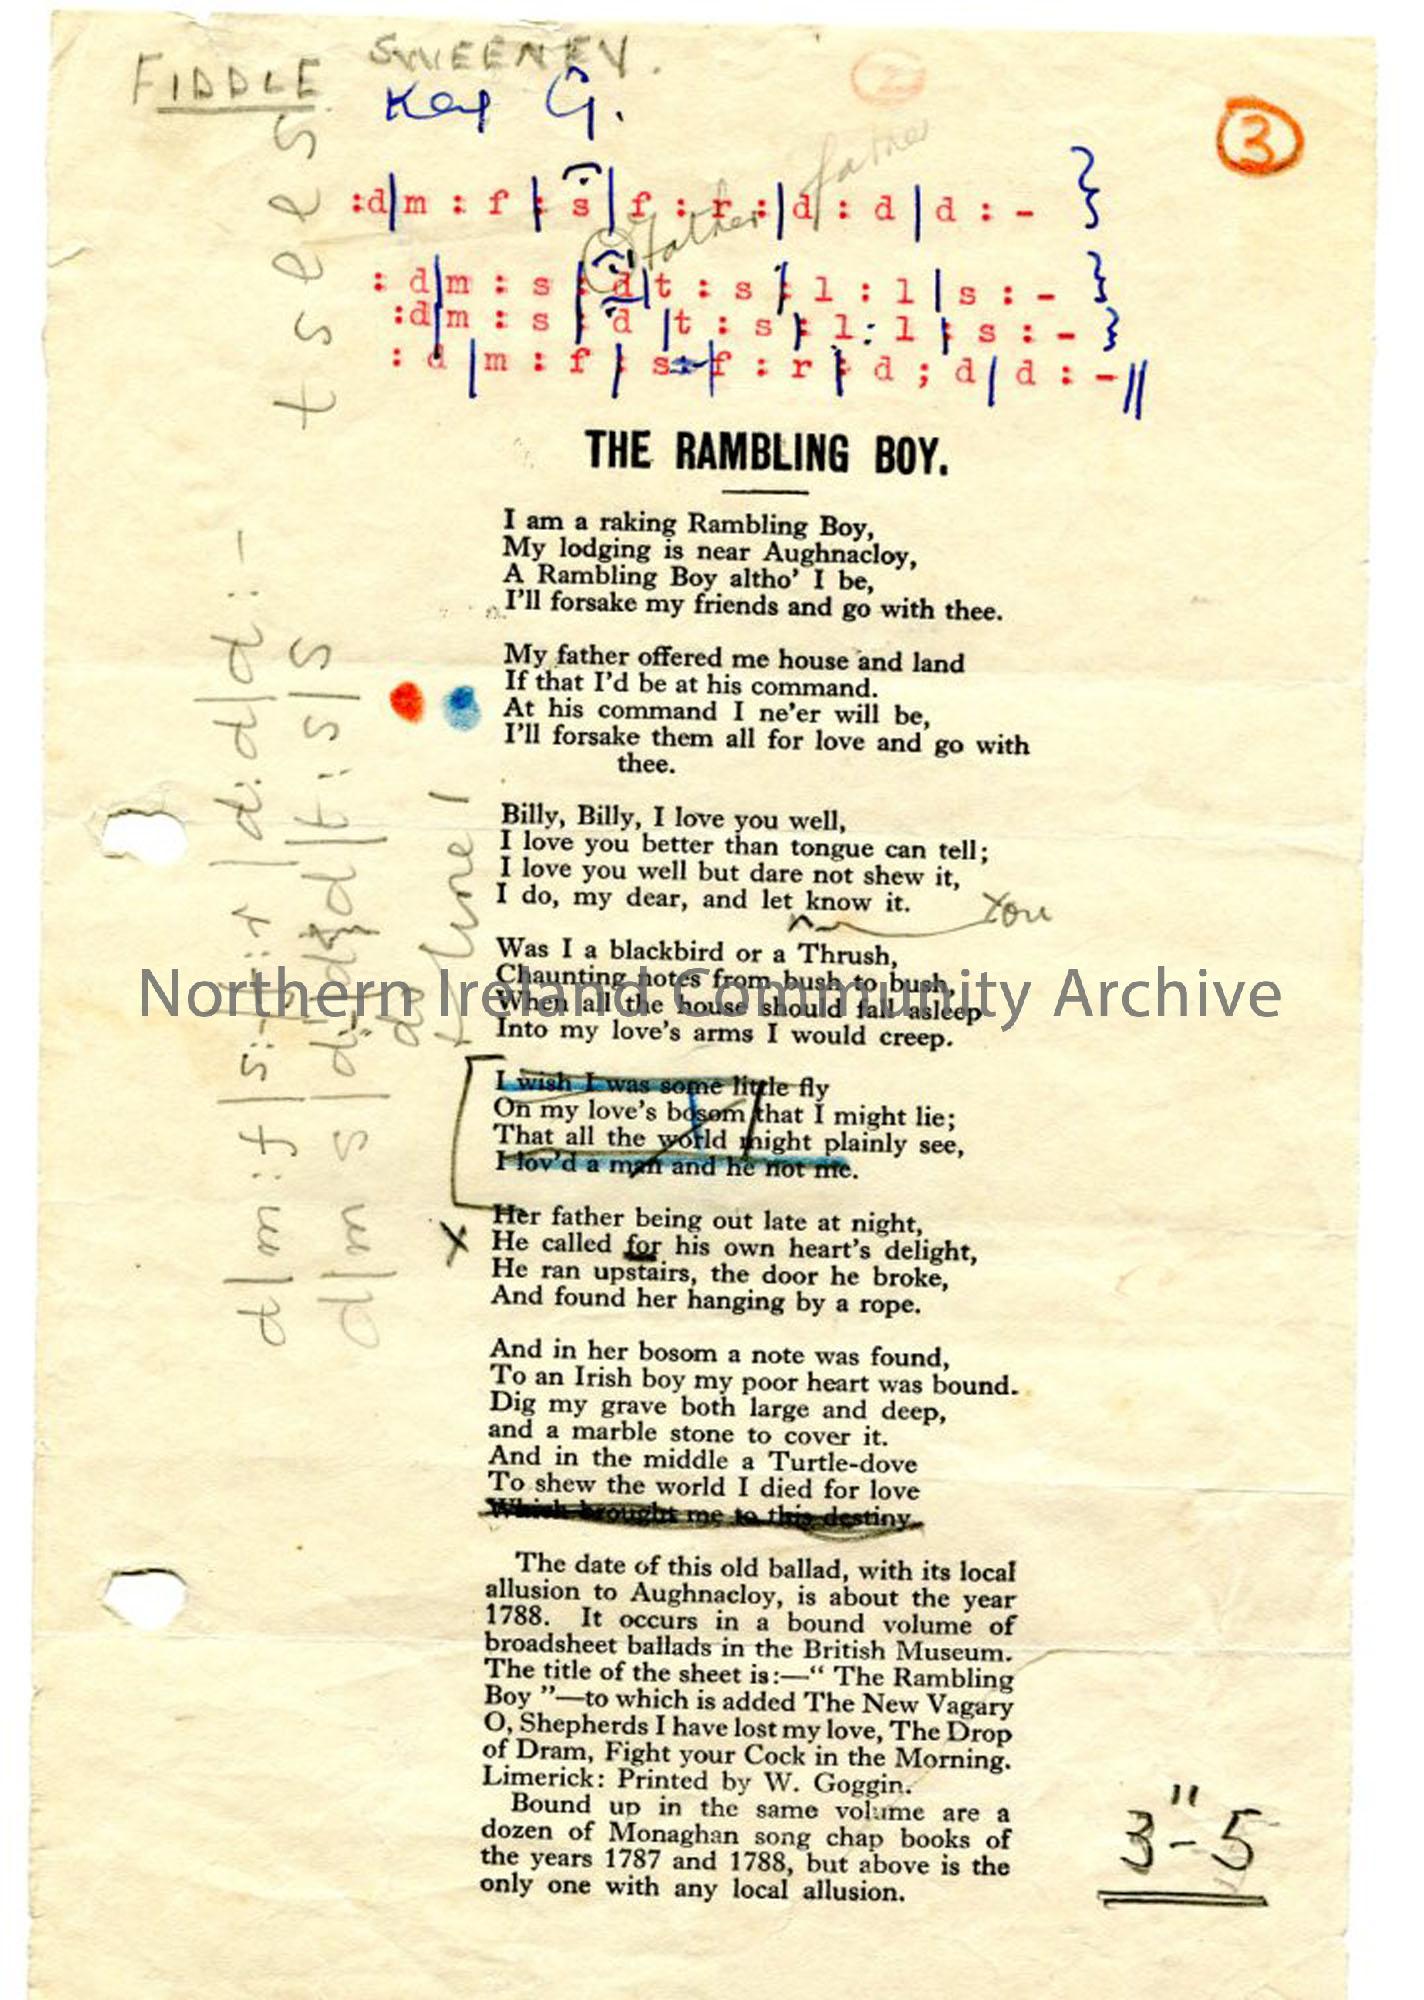 FIDDLE SWEENEY.
Key G.
2
3
father
father
:d|m : f |: s |f : r :|d : d |d : - }
: d|m : s |: d|t : s |: l : l |s : - }
:d|m : s |: d |t : s |: l : l |: s : - }
: d |m : f |: s - |f : r |: d ; d |d : - ||
THE RAMBLING BOY.
I am a raking Rambling Boy,
My lodging is near Aughnacloy,
A Rambling Boy altho' I be,
I'll forsake my friends and go with thee.
My father offered me house and land
If that I'd be at his command.
At his command I ne'er will be,
I'll forsake them all for love and go with
thee.
Billy, Billy, I love you well,
I love you better than tongue can tell;
I love you well but dare not shew it,
I do, my dear, and let know it.
You
Was I a blackbird or a Thrush,
Chaunting notes from bush to bush,
When all the house should fall asleep
Into my love's arms I would creep.
I wish I was some little fly
On my love's bosom that I might lie;
That all the world might plainly see,
I lov'd a man and he not me.
Her father being out late at night,
X He called for his own heart's delight,
He ran upstairs, the door he broke,
And found her hanging by a rope.
And in her bosom a note was found,
To an Irish boy my poor heart was bound.
Dig my grave both large and deep,
and a marble stone to cover it.
And in the middle a Turtle-dove
To shew the world I died for love
Which brought me to this destiny.
The date of this old ballad, with its local
allusion to Aughnacloy, is about the year
1788. It occurs in a bound volume of
broadsheet ballads in the British Museum.
The title of the sheet is:—“ The Rambling
Boy ”—to which is added The New Vagary
O, Shepherds I have lost my love, The Drop
of Dram, Fight your Cock in the Morning.
Limerick: Printed by W. Goggin.
Bound up in the same volume are a
dozen of Monaghan song chap books of
the years 1787 and 1788, but above is the
only one with any local allusion.
3"-5
t s e e s
line 1
Northern Ireland Community Archive